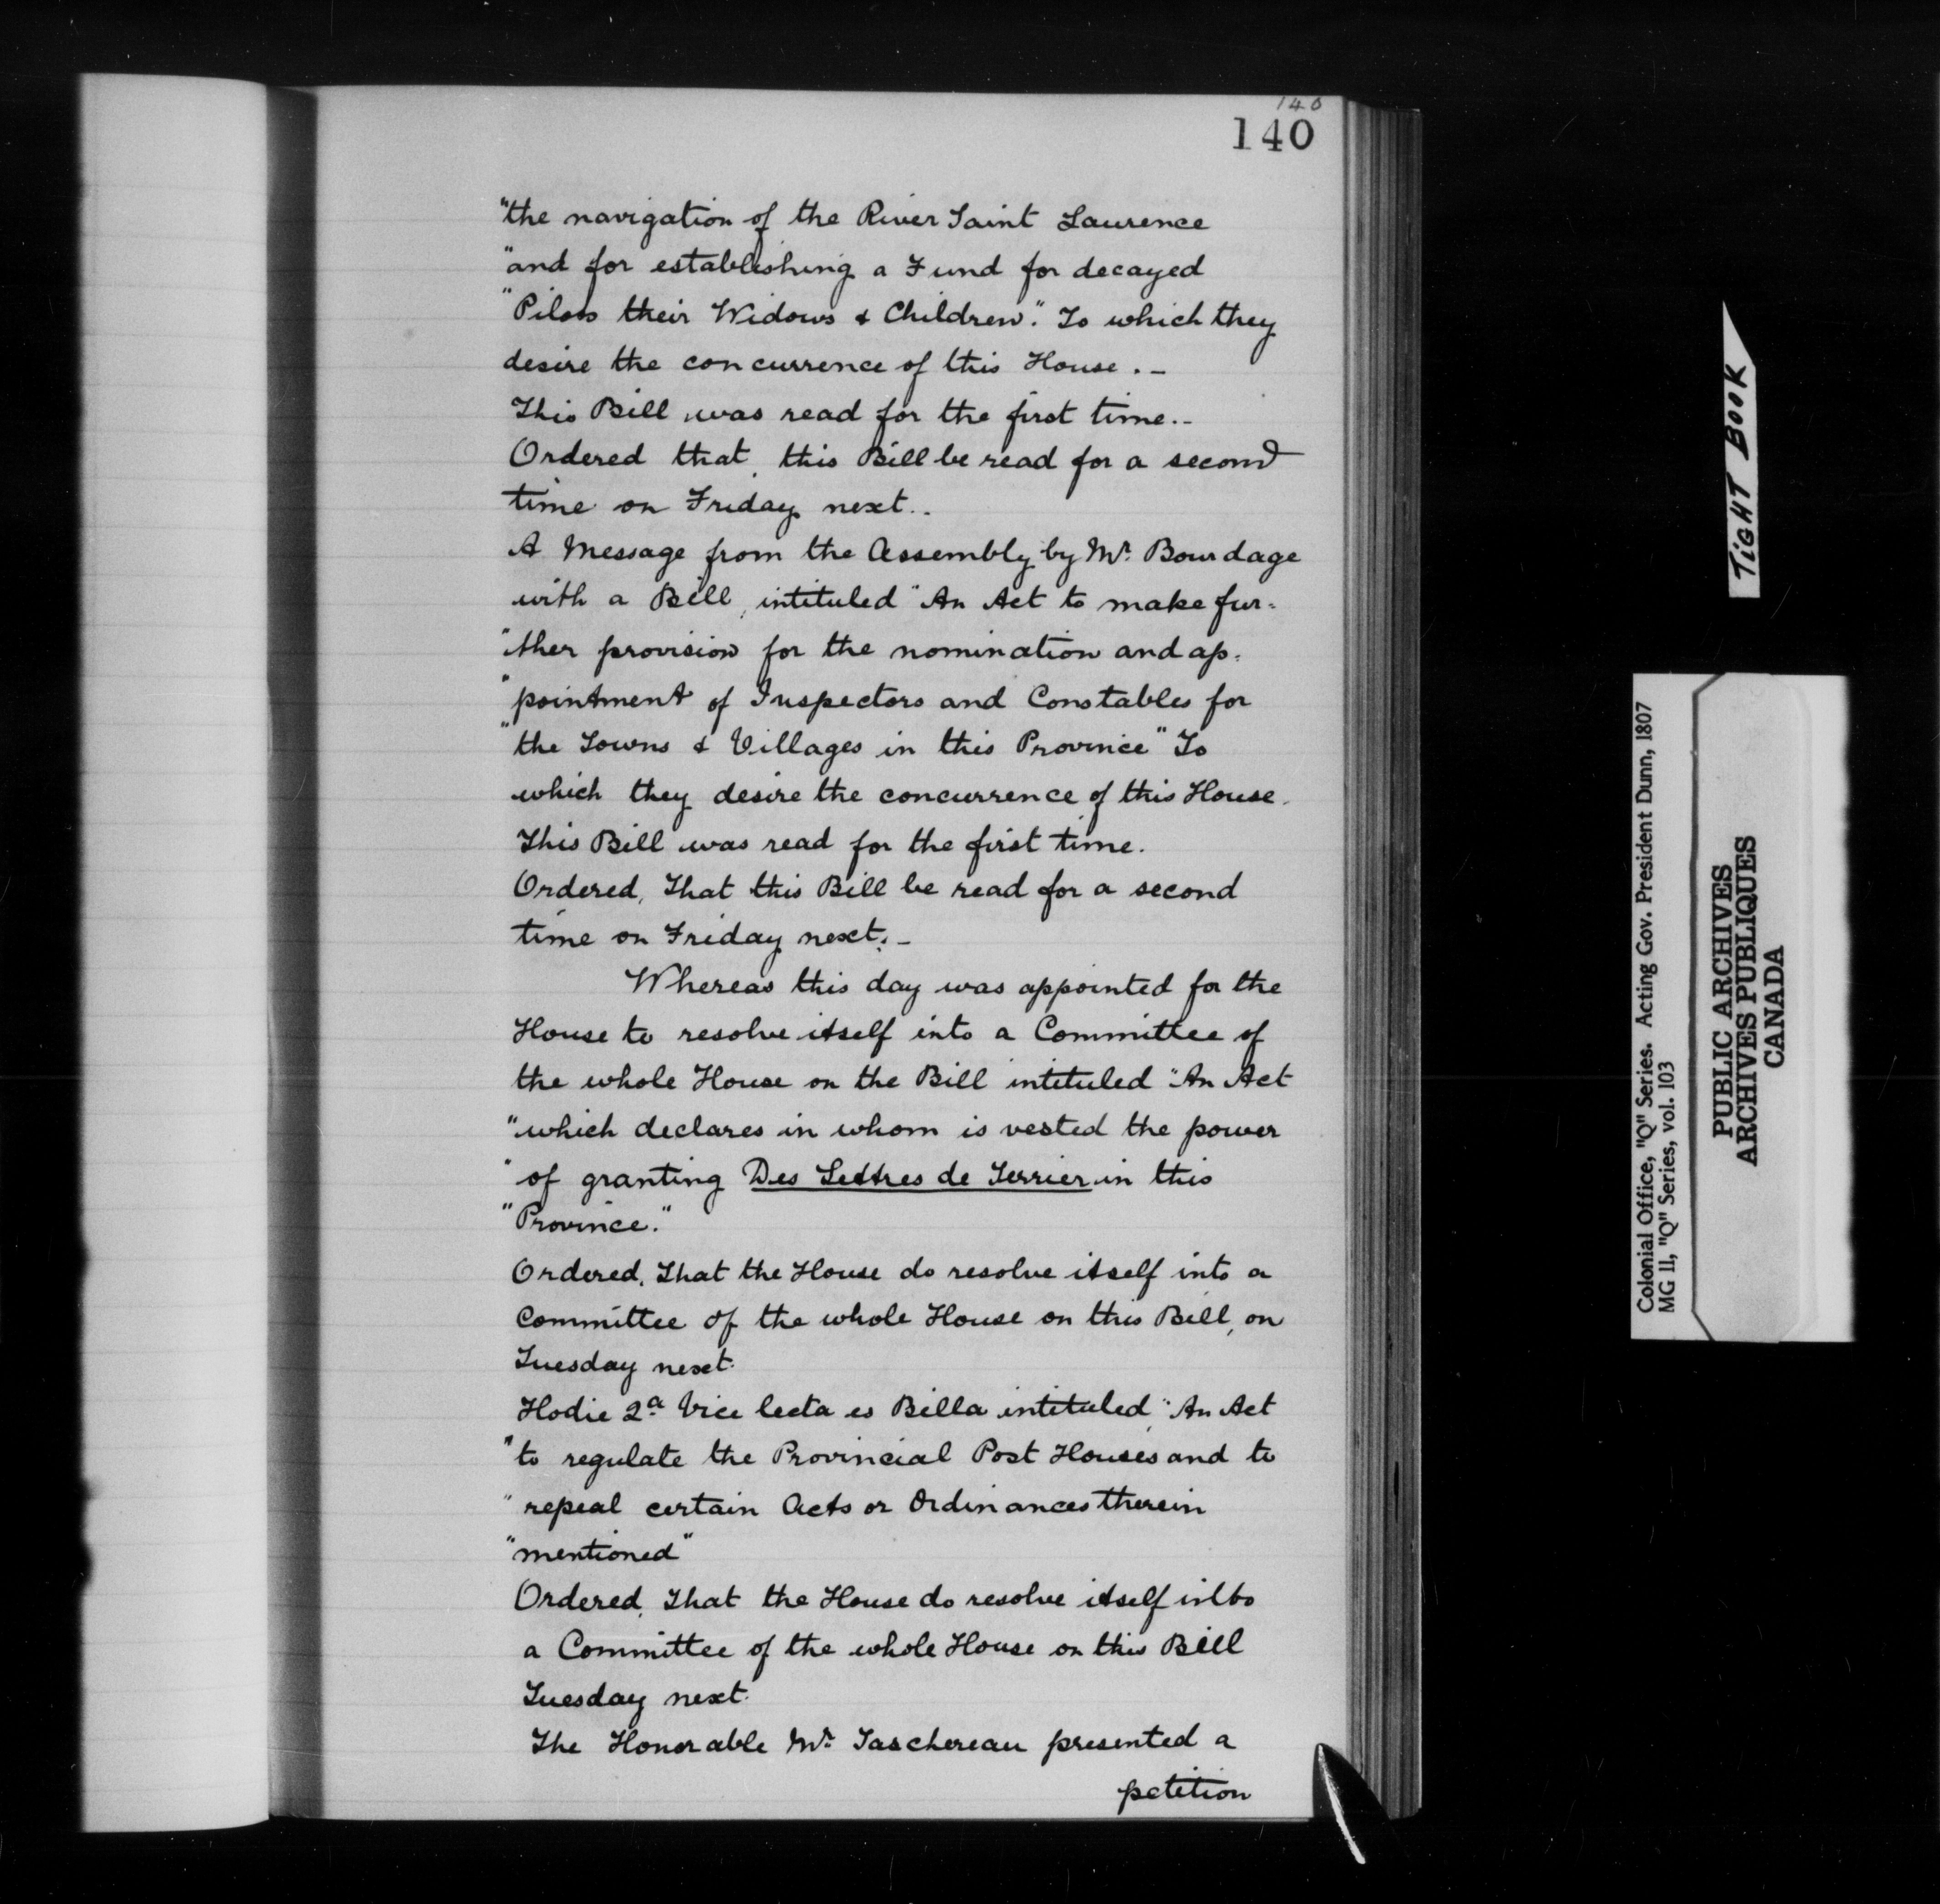 140
140
"the navigation of the River Saint Laurence
"and for establishing a Fund for decayed
"Pilots their Widows & Children." To which they
desire the concurrence of this House. -
This Bill was read for the first time. -
Ordered that, this Bill be read for a second
time on Friday next. .
A Message from the Assembly by Mr. Bourdage
with a Bill, intituled "An Act to make fur-
"ther provision for the nomination and ap-
"pointment of Inspectors and Constables for
"the Towns & Villages in this Province" To
which they desire the concurrence of this House.
This Bill was read for the first time.
Ordered, That this Bill be read for a second
time on Friday next. -
Whereas this day was appointed for the
House to resolve itself into a Committee of
the whole House on the Bill intituled "An Act
"which declares in whom is vested the power
"of granting Des Lettres de Terrier in this
"Province."
Ordered, That the House do resolve itself into a
Committee of the whole House on this Bill, on
Tuesday next.
Hodie 2a Vice lecta es Billa intituled, "An Act
"to regulate the Provincial Post Houses and to
"repeal certain Acts or Ordinances therein
"mentioned"
Ordered, That the House do resolve itself into
a Committee of the whole House on this Bill
Tuesday next.
The Honorable Mr. Taschereau presented a
petition
TIGHT BOOK
Colonial Office, "Q" Series. Acting Gov. President Dunn, 1807
MG 11, "Q" Series, vol. 103
PUBLIC ARCHIVES
ARCHIVES PUBLIQUES
CANADA